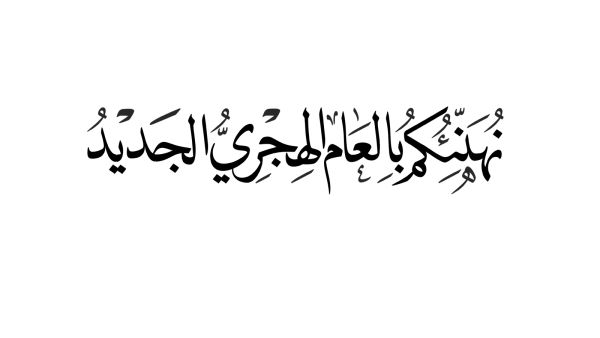 نُهَنِّئُكُم بِالعَامِ الهِجْرِيُّ الجَدِيدُ